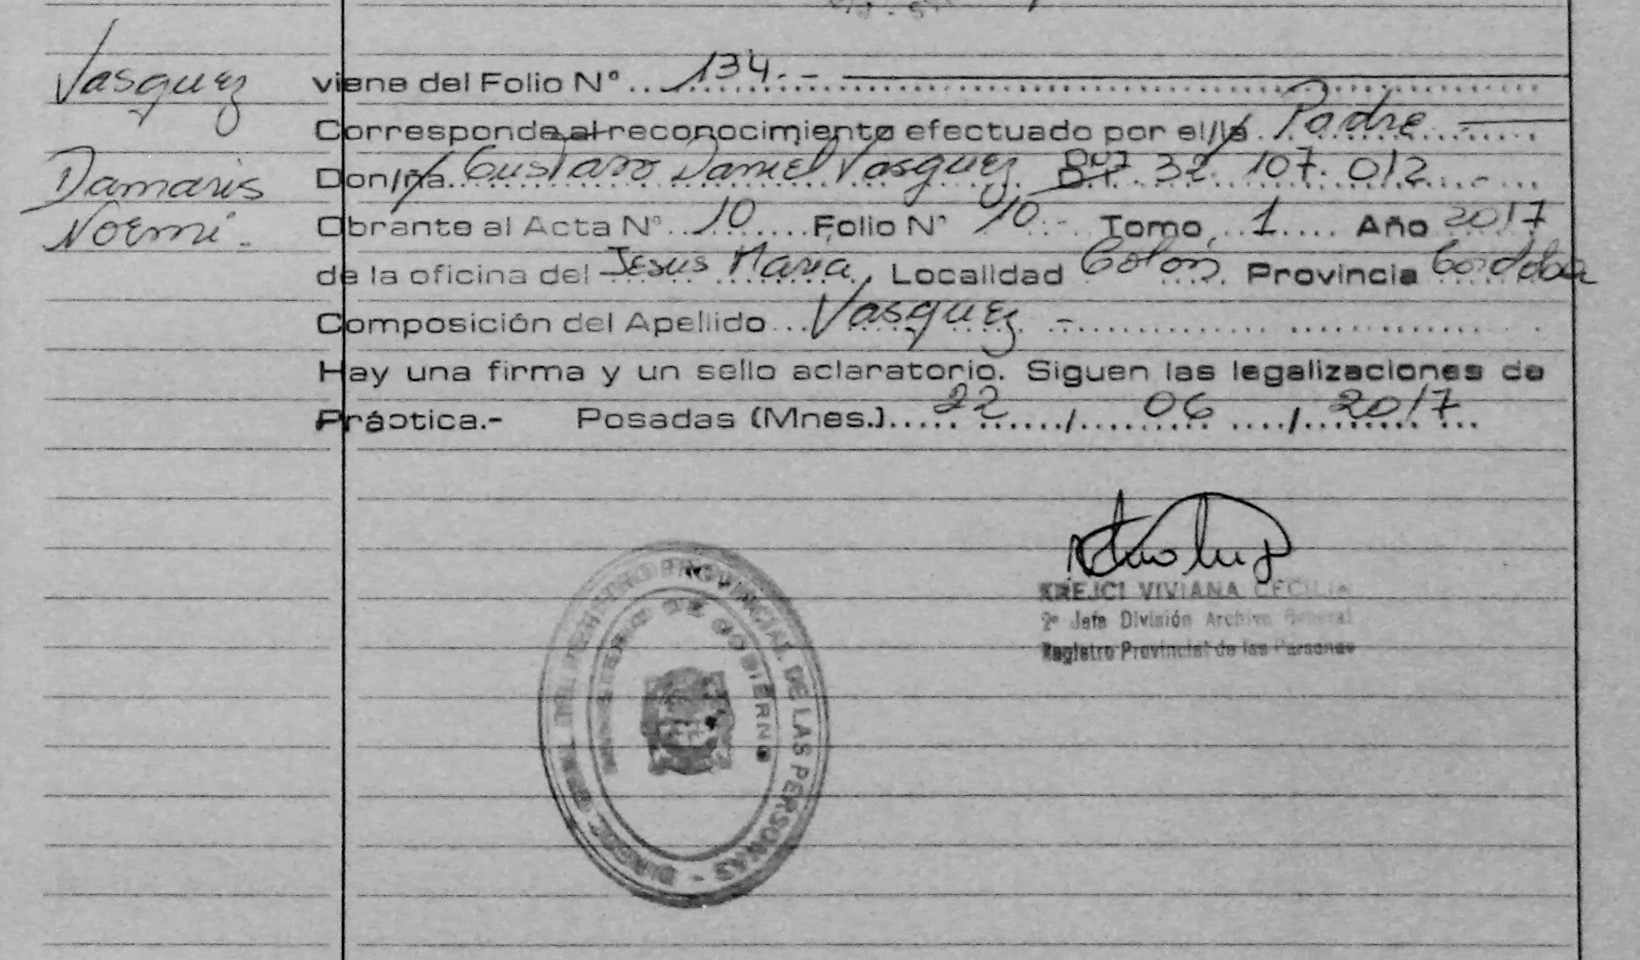 Vasquez
Damaris
Noemi.
viene del Folio N° ... 134. -
Corresponde al reconocimiento efectuado por el/la Padre -
Don/ña Gustavo Daniel Vasquez 32 107. 012 -
Obrante al Acta N° 10 Folio N° 10 - Tomo 1 Año 2017
de la oficina del Jesus Maria, Localidad Colon Provincia Cordoba
Composición del Apellido Vasquez -
Hay una firma y un sello aclaratorio. Siguen las legalizaciones de
Práctica.- Posadas (Mnes.) 22 / 06 / 2017
KREJCI VIVIANA CECILIA
2° Jefe División Archivo General
Registro Provincial de las Personas
REGISTRO PROVINCIAL DE LAS PERSONAS -
MINISTERIO DE GOBIERNO